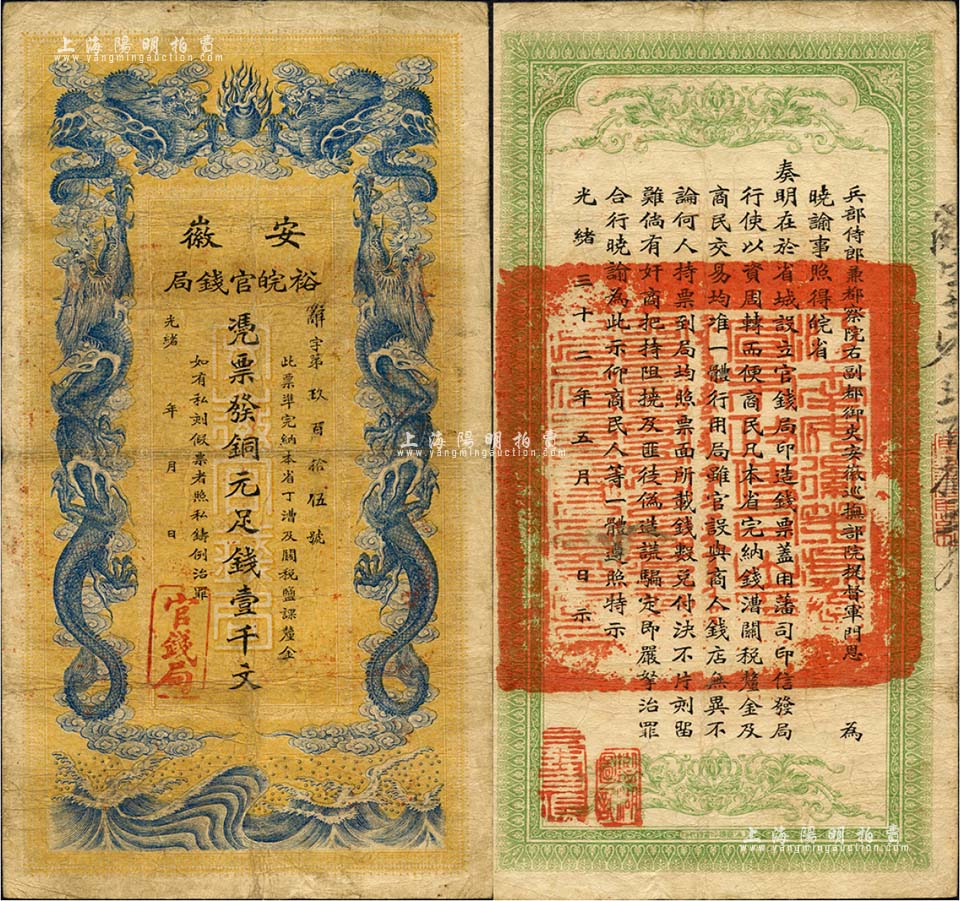 上海陽明拍賣
www.yangmingauction.com
安徽
裕皖官錢局
辭字第玖百拾伍號
此票準完納本省丁漕及關稅鹽課釐金
憑票發銅元足錢壹千文
如有私刻假票者照私鑄例治罪
光緒 年 月 日
官錢局
上海陽明拍賣
www.yangmingauction.com
兵部侍郎兼都察院右副都御史安徽巡撫部院提督軍門恩 為
曉諭事照得皖省
奏明在於省城設立官錢局印造錢票蓋用藩司印信發局
行使以資周轉而便商民凡本省完納錢漕關稅釐金及
商民交易均准一體行用局雖官設與商人錢店無異不
論何人持票到局均照票面所載錢數兌付決不片刻留
難倘有奸商把持阻撓及匪徒偽造謊騙定即嚴拏治罪
合行曉諭為此示仰商民人等一體遵照特示
光緒三十二年五月 日示
上海陽明拍賣
www.yangmingauction.com
上海陽明拍賣
www.yangmingauction.com